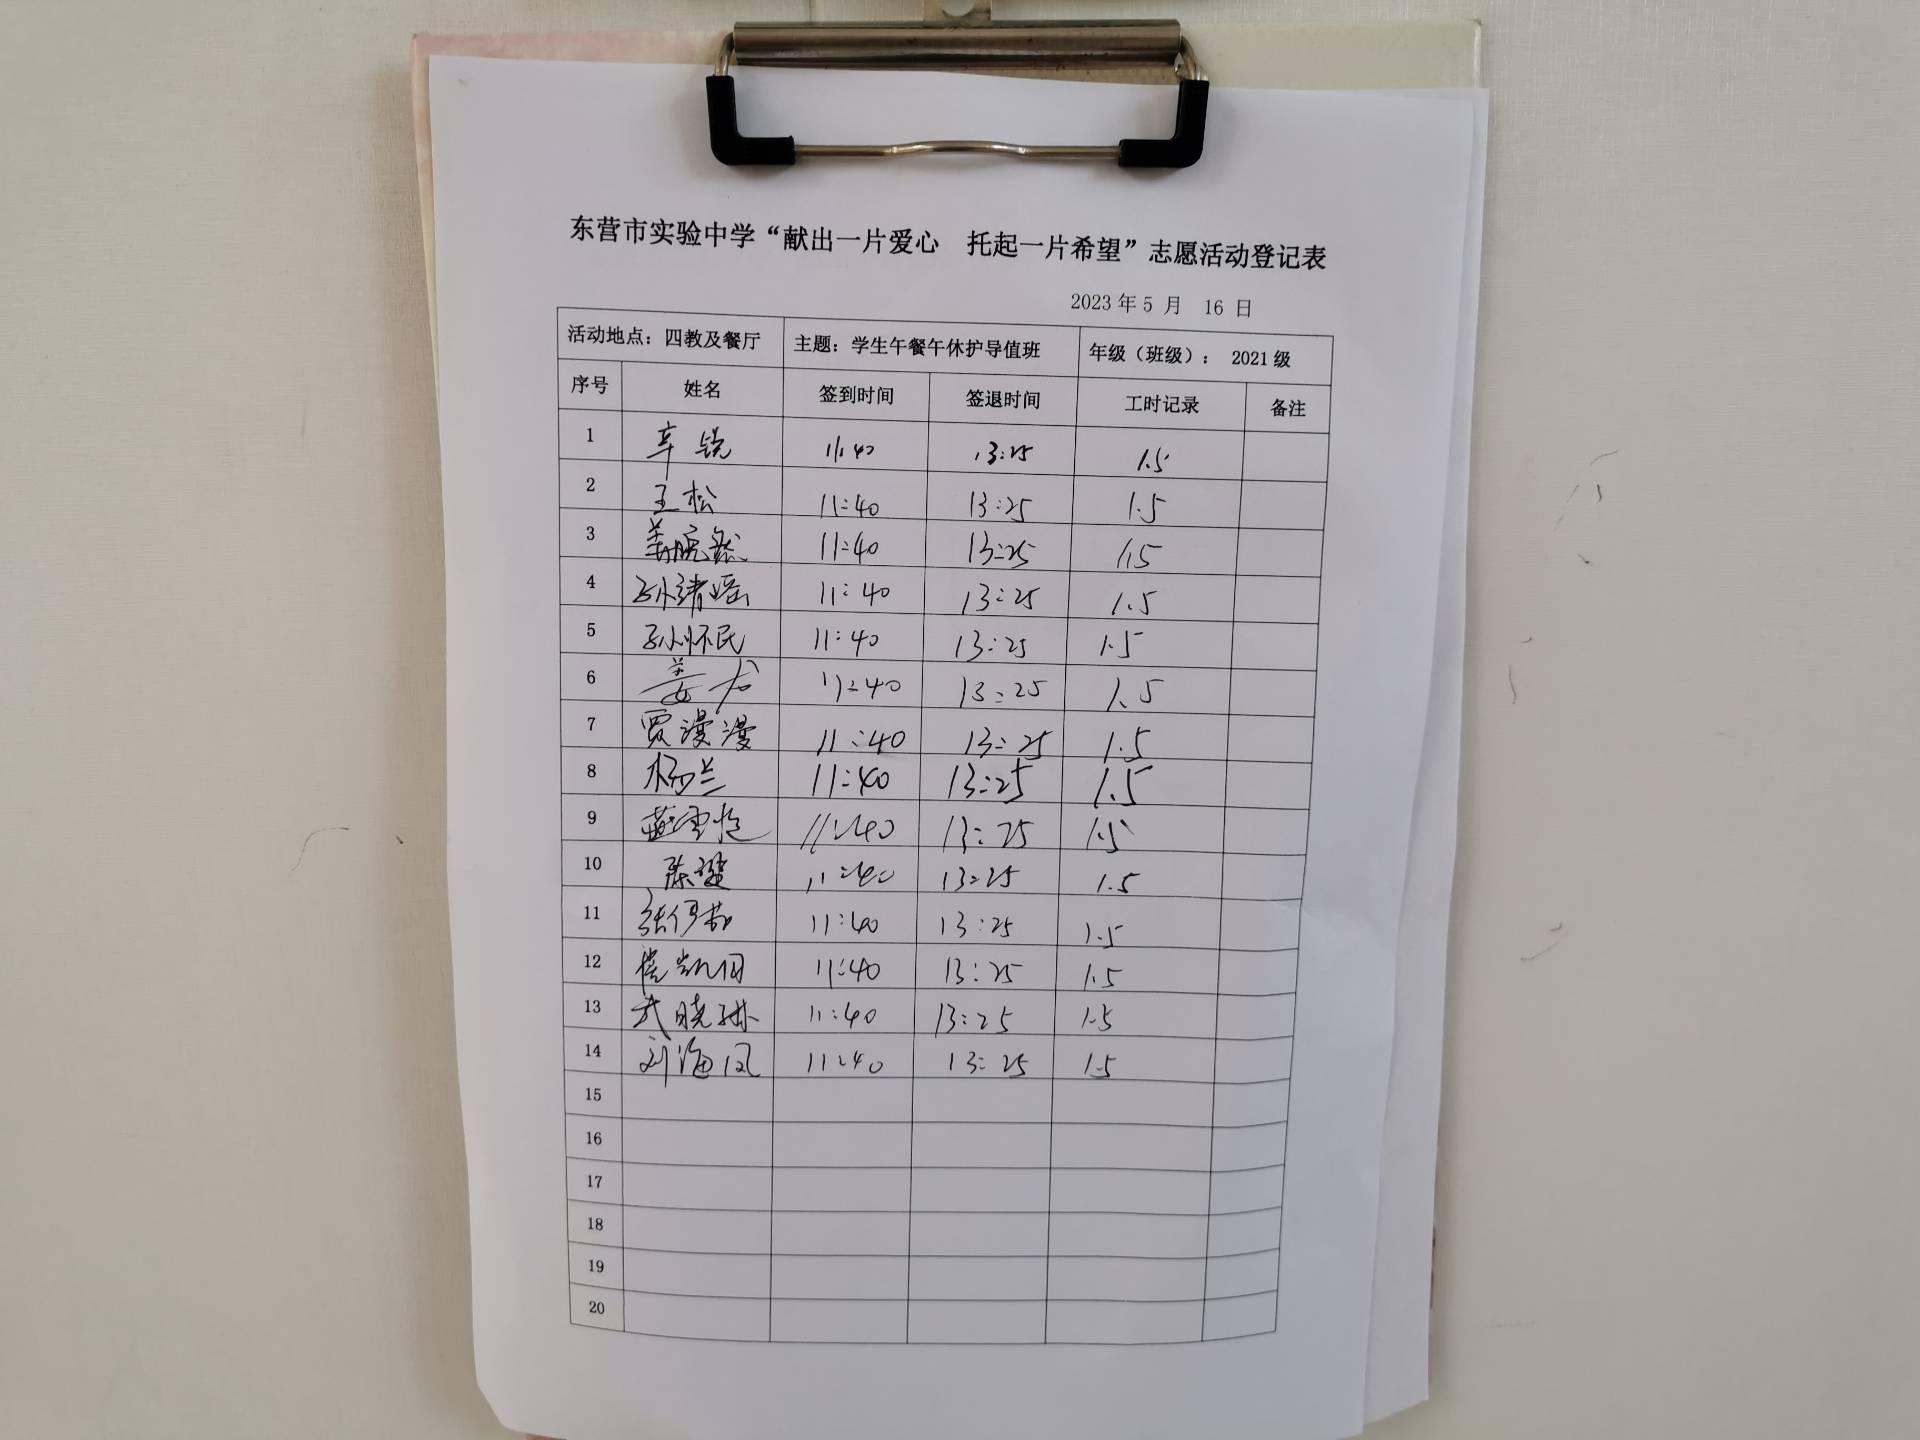 东营市实验中学“献出一片爱心 托起一片希望”志愿活动登记表
2023年5月 16日
活动地点：四教及餐厅 主题：学生午餐午休护导值班 年级（班级）： 2021级
序号 姓名 签到时间 签退时间 工时记录 备注
1 辛锐 11:40 13:25 1.5
2 王松 11:40 13:25 1.5
3 11:40 13:25 1.5
4 孙靖瑶 11:40 13:25 1.5
5 孙怀民 11:40 13:25 1.5
6 姜龙 11:40 13:25 1.5
7 贾漫漫 11:40 13:25 1.5
8 杨兰 11:40 13:25 1.5
9 11:40 13:25 1.5
10 11:40 13:25 1.5
11 11:40 13:25 1.5
12 11:40 13:25 1.5
13 武晓琳 11:40 13:25 1.5
14 刘海凤 11:40 13:25 1.5
15
16
17
18
19
20